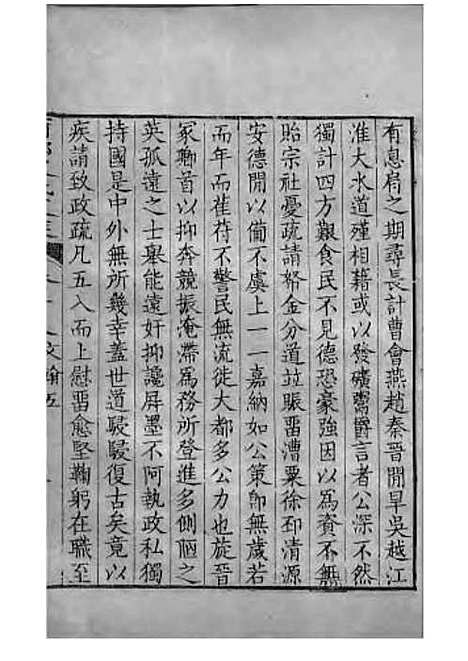 有息肩之期尋長計曹會燕趙秦晉閒旱吳越江
淮大水道殣相藉或以發礦鬻爵言者公深不然
獨計四方艱食民不見德恐豪強因以為資不無
貽宗社憂疏請帑金分道竝賑畱漕粟徐邳清源
安德閒以備不虞上一一嘉納如公策卽無歲若
而年而萑苻不警民無流徙大都多公力也旋晉
冢卿首以抑奔競振淹滯爲務所登進多側陋之
英孤遠之士舉能遠奸抑讒屏墨不阿執政私獨
持國是中外無所幾幸蓋世道駸駸復古矣竟以
疾請致政疏凡五入而上慰畱愈堅鞠躬在職至